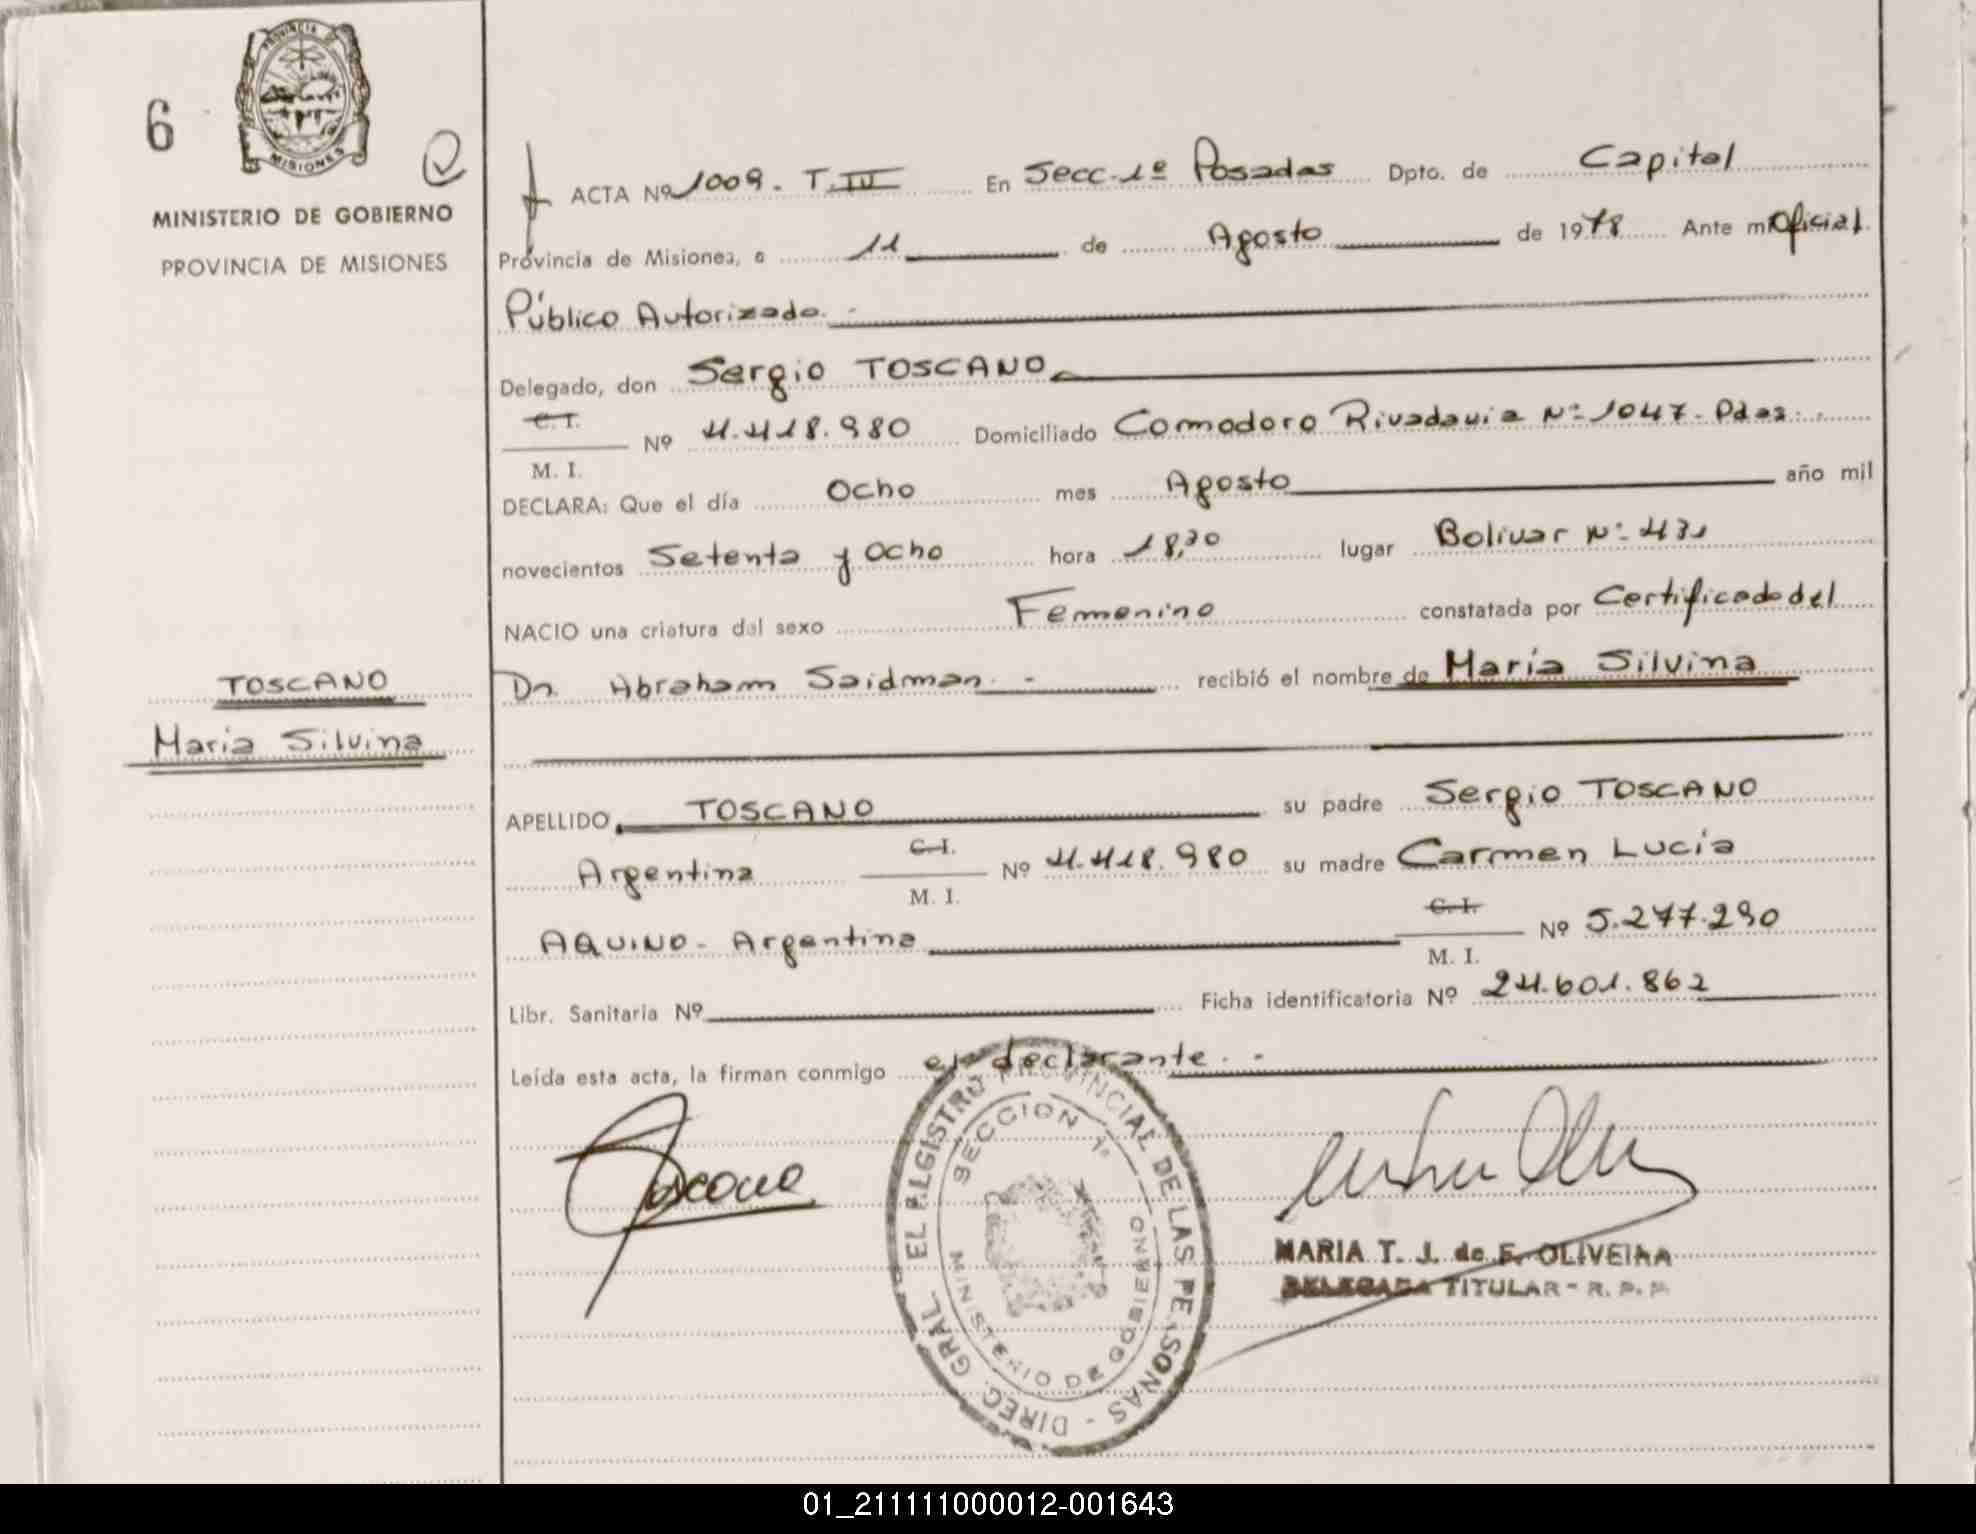 PROVINCIA DE
MISIONES
6
MINISTERIO DE GOBIERNO
PROVINCIA DE MISIONES
ACTA Nº 1009. T. IV En Secc. 1º Posadas Dpto. de Capital
Provincia de Misiones, a 11 de Agosto de 1978 Ante mi Oficial
Público Autorizado. -
Delegado, don Sergio TOSCANO
C. I.
M. I.
Nº 4.418.980 Domiciliado Comodoro Rivadavia Nº 1047. Pdas.
DECLARA: Que el día Ocho mes Agosto año mil
novecientos Setenta y Ocho hora 18,30 lugar Bolivar Nº 431
NACIO una criatura del sexo Femenino constatada por Certificado del
Dr. Abraham Saidman. - recibió el nombre de María Silvina
TOSCANO
María Silvina
APELLIDO TOSCANO su padre Sergio TOSCANO
Argentina C. I. M. I. Nº 4.418.980 su madre Carmen Lucía
AQUINO - Argentina C. I. M. I. Nº 5.277.290
Libr. Sanitaria Nº Ficha identificatoria Nº 24.601.862
Leída esta acta, la firman conmigo el declarante. -
Toscano
DIREC. GRAL. EL REGISTRO PROVINCIAL DE LAS PERSONAS -
SECCION 1ª
MINISTERIO DE GOBIERNO
MARIA T. J. de F. OLIVEIRA
DELEGADA TITULAR - R. P. P.
01_211111000012-001643